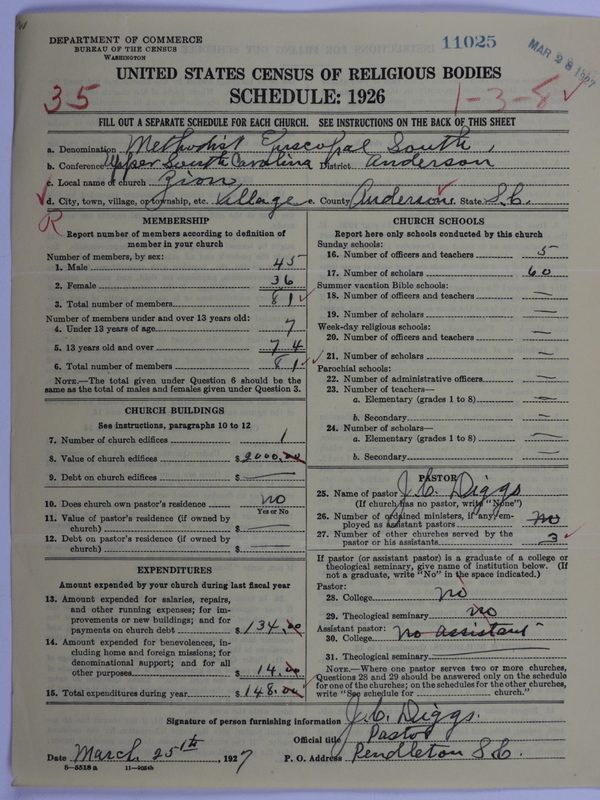 DEPARTMENT OF COMMERCE
BUREAU OF THE CENSUS
WASHINGTON
11025
MAR 28 1927
UNITED STATES CENSUS OF RELIGIOUS BODIES
SCHEDULE: 1926
35
1-3-8 ✓
FILL OUT A SEPARATE SCHEDULE FOR EACH CHURCH. SEE INSTRUCTIONS ON THE BACK OF THIS SHEET
a. Denomination Methodist Episcopal South,
b. Conference Upper South Carolina District Anderson
c. Local name of church Zion
d. City, town, village, or township, etc. Village e. County Anderson f. State S.C.
R
MEMBERSHIP
Report number of members according to definition of
member in your church
Number of members, by sex:
1. Male 45
2. Female 36
3. Total number of members 81 ✓
Number of members under and over 13 years old:
4. Under 13 years of age 7
5. 13 years old and over 74
6. Total number of members 81 ✓ ✓
NOTE.—The total given under Question 6 should be the
same as the total of males and females given under Question 3.
CHURCH BUILDINGS
See instructions, paragraphs 10 to 12
7. Number of church edifices 1
8. Value of church edifices $ 2000.00
9. Debt on church edifices $ —
10. Does church own pastor's residence no
Yes or No
11. Value of pastor's residence (if owned by
church) $ —
12. Debt on pastor's residence (if owned by
church) $ —
EXPENDITURES
Amount expended by your church during last fiscal year
13. Amount expended for salaries, repairs,
and other running expenses; for im-
provements or new buildings; and for
payments on church debt $ 134.00
14. Amount expended for benevolences, in-
cluding home and foreign missions; for
denominational support; and for all
other purposes $ 14.00
15. Total expenditures during year $ 148.00 ✓
CHURCH SCHOOLS
Report here only schools conducted by this church
Sunday schools:
16. Number of officers and teachers 5
17. Number of scholars 60
Summer vacation Bible schools:
18. Number of officers and teachers —
19. Number of scholars —
Week-day religious schools:
20. Number of officers and teachers —
21. Number of scholars —
Parochial schools:
22. Number of administrative officers —
23. Number of teachers—
a. Elementary (grades 1 to 8) —
b. Secondary —
24. Number of scholars—
a. Elementary (grades 1 to 8) —
b. Secondary —
PASTOR
25. Name of pastor J.C. Diggs
(If church has no pastor, write "None")
26. Number of ordained ministers, if any, em-
ployed as assistant pastors no
27. Number of other churches served by the
pastor or his assistants 3 ✓
If pastor (or assistant pastor) is a graduate of a college or
theological seminary, give name of institution below. (If
not a graduate, write "No" in the space indicated.)
Pastor:
28. College no
29. Theological seminary no
Assistant pastor:
30. College no assistant
31. Theological seminary
NOTE.—Where one pastor serves two or more churches,
Questions 28 and 29 should be answered only on the schedule
for one of the churches; on the schedules for the other churches,
write "See schedule for church."
Signature of person furnishing information J.C. Diggs.
Official title Pastor
Date March 25th, 1927 P. O. Address Pendleton S.C.